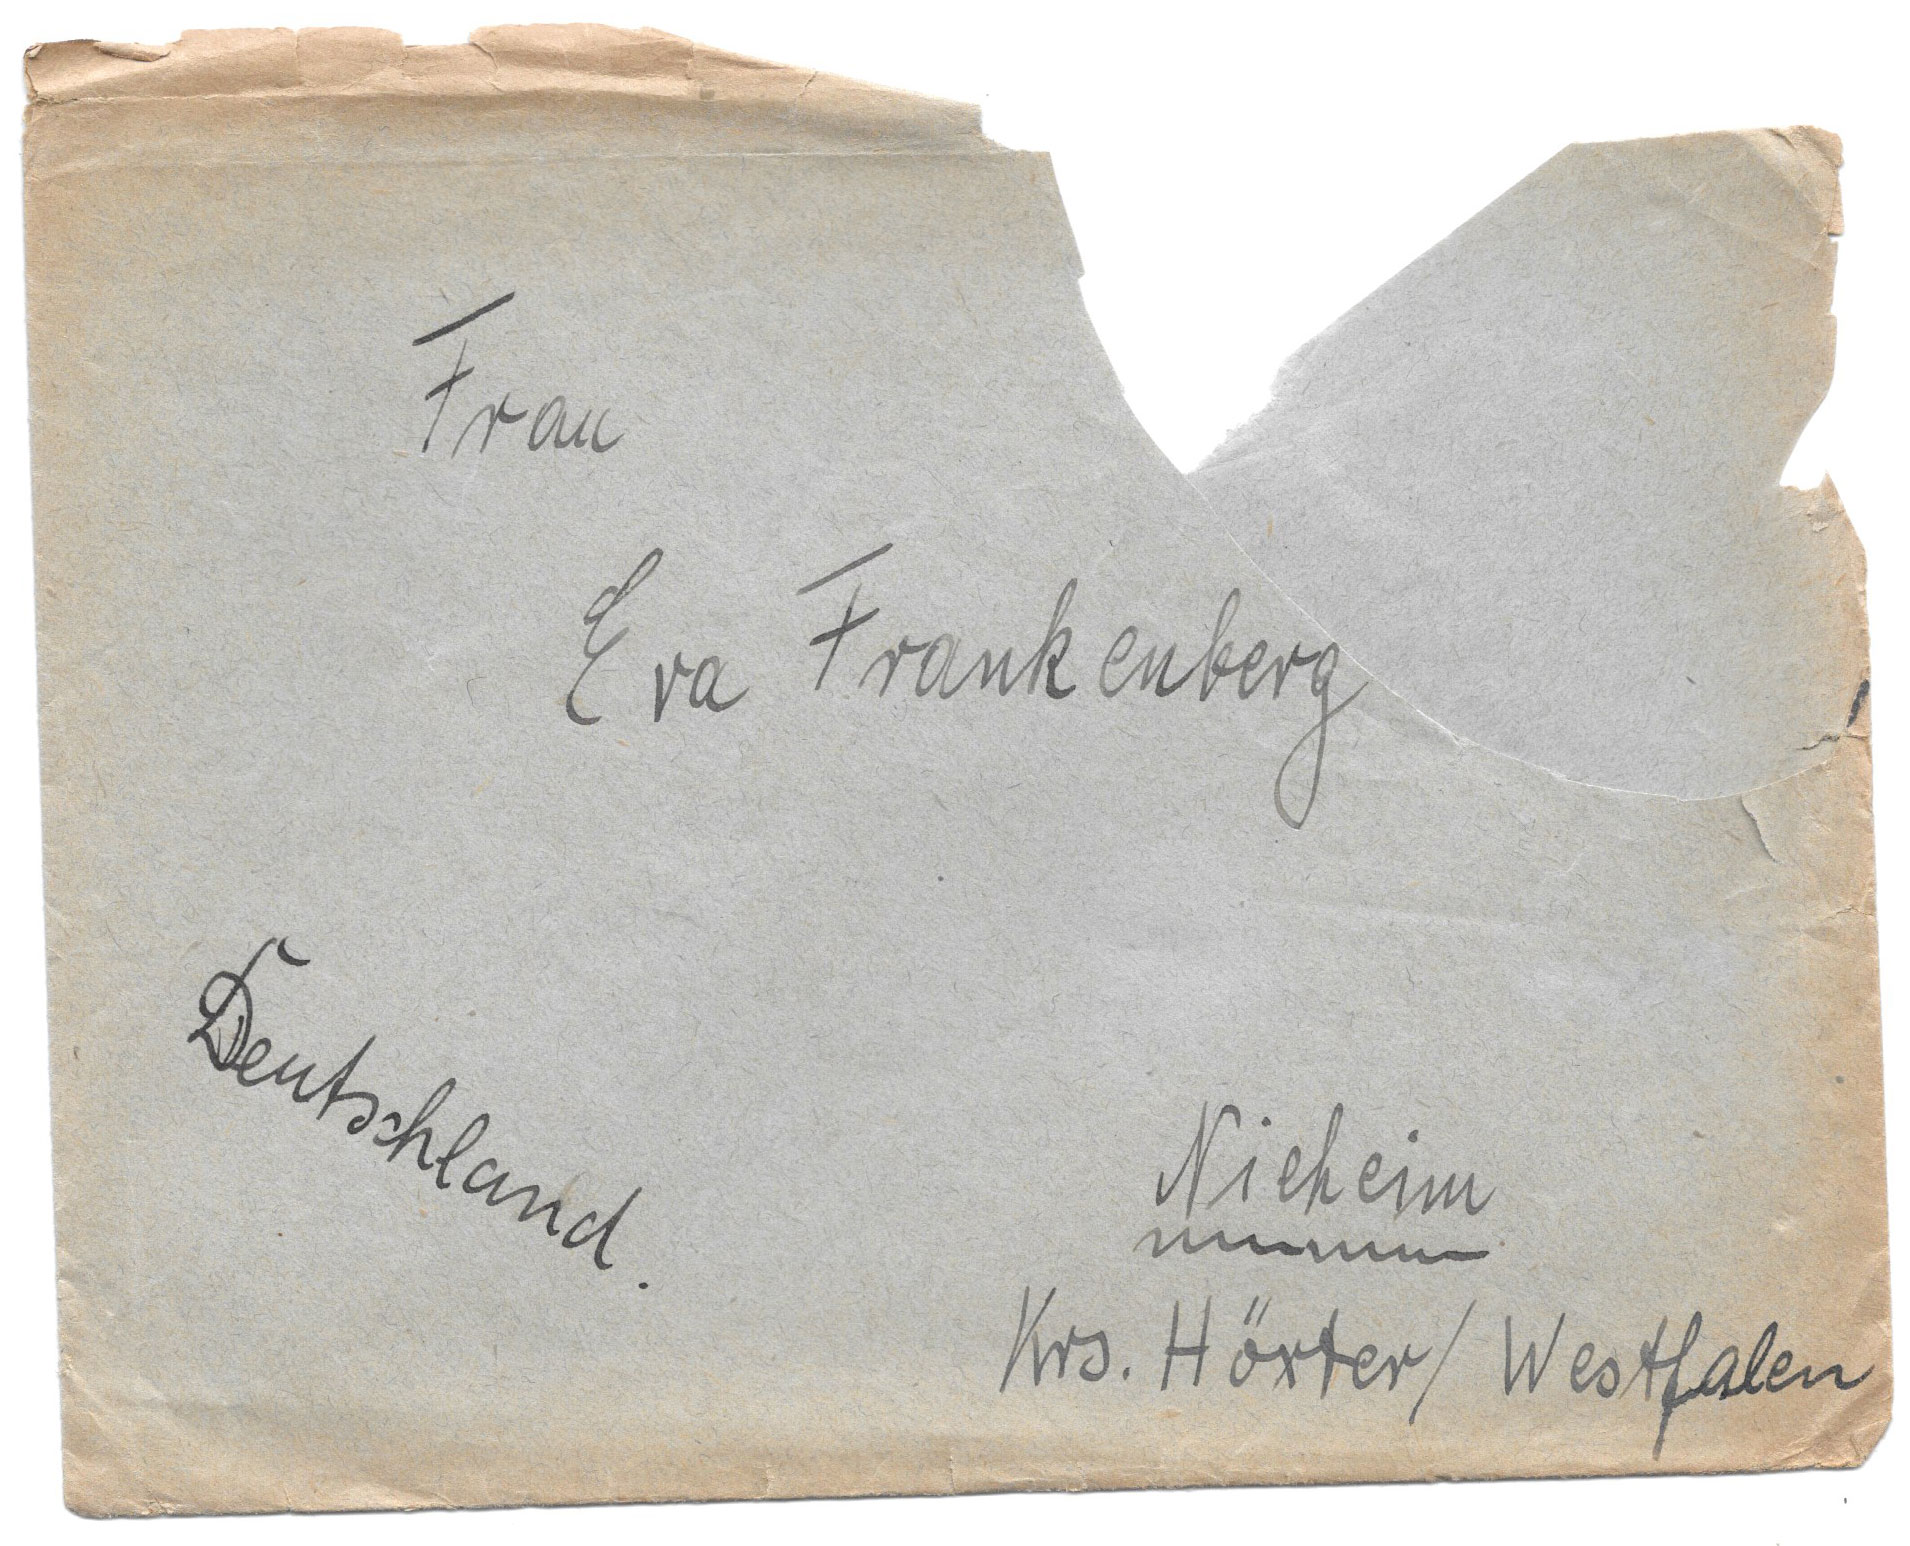 Frau
Eva Frankenberg
Deutschland.
Nieheim
Krs. Höxter/Westfalen